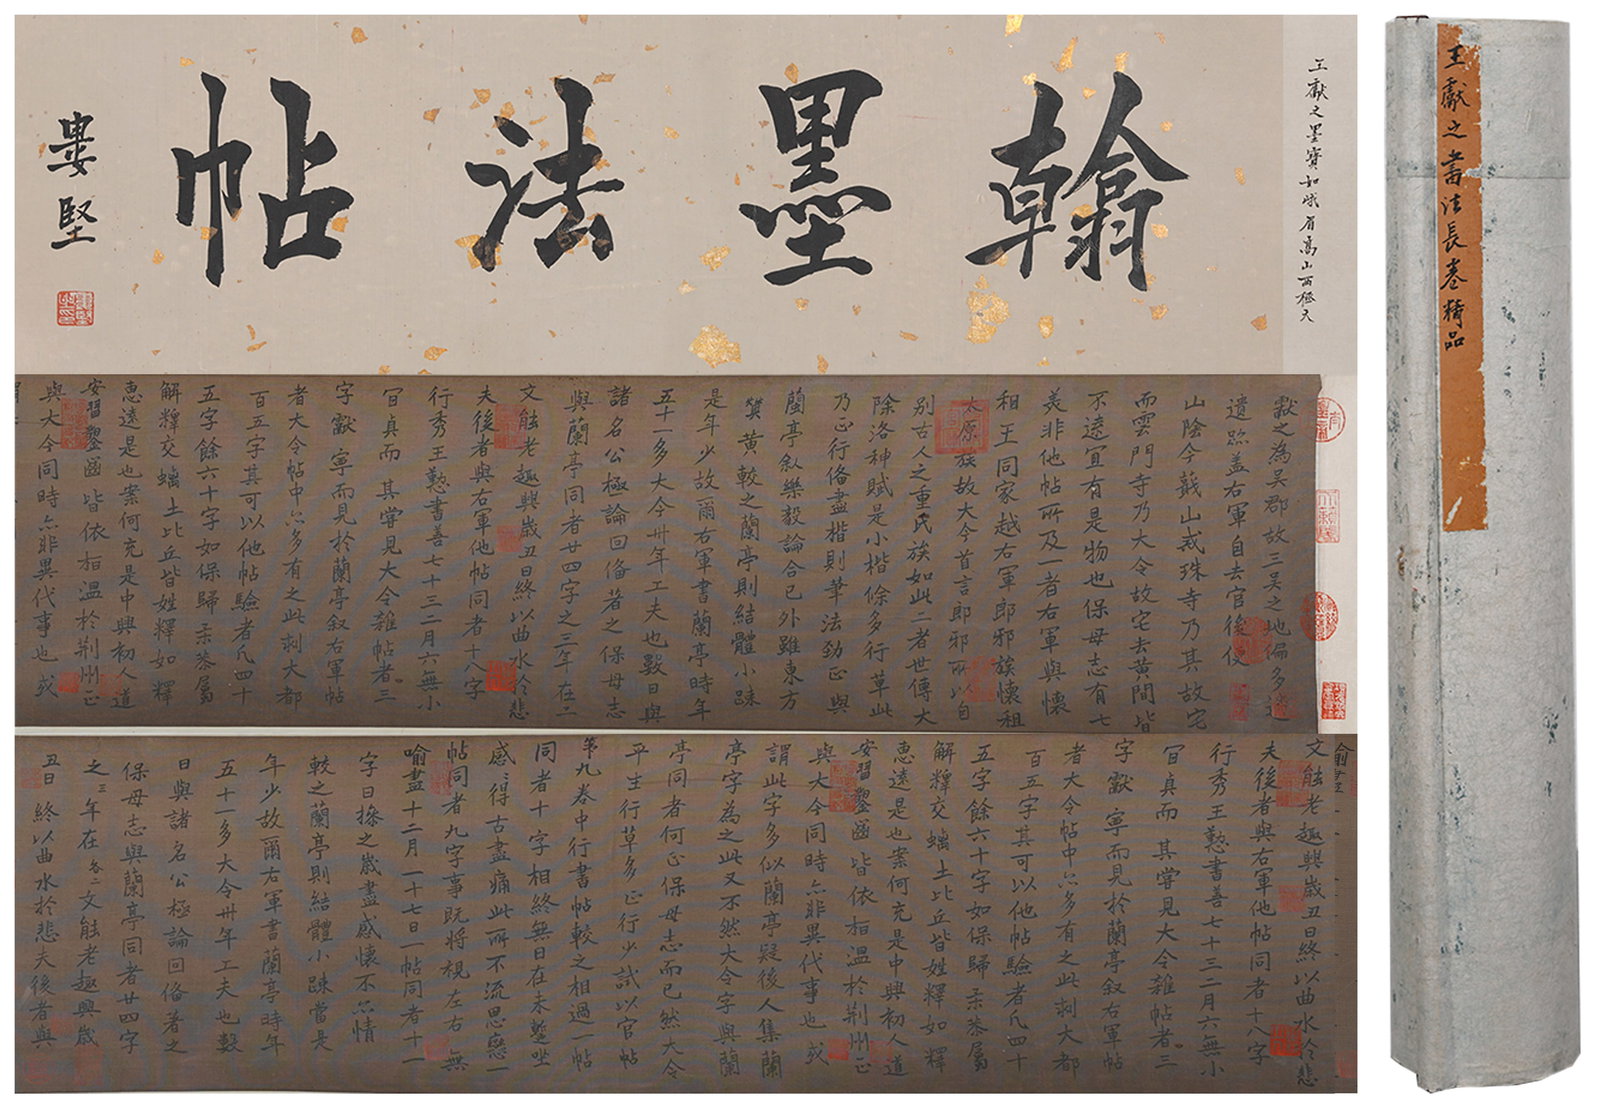 翰墨法帖
婁堅
王獻之墨寶如峨眉高山西極天
王獻之書法長卷精品
獻之為吳郡故三吳之地偏多遺
遺跡蓋右軍自去官後便
山陰今蕺山戒珠寺乃其故宅
而雲門寺乃大令故宅去黃閒皆
不遠宜有是物也保母志有七
美非他帖所及一者右軍與懷
相王同家越右軍郎邪族懷祖
太原族故大令首言郎邪所以自
別古人之重氏族如此二者世傳大
除洛神賦是小楷餘多行草此
乃正行俻盡楷則筆法勁正與
蘭亭叙樂毅論合已外雖東方
贊黃較之蘭亭則結體小踈
是年少故爾右軍書蘭亭時年
五十一多大令卅年工夫也數日與
諸名公極論回俻著之保母志
與蘭亭同者廿四字之三年在二
文能老趣興歲丑日終以曲水於悲
夫後者與右軍他帖同者十八字
行秀王懃書善七十三二月六無小
冝真而其嘗見大令雜帖者三
字獻寧而見於蘭亭叙右軍帖
者大令帖中亦多有之此刻大都
百五字其可以他帖驗者凡四十
五字餘六十字如保歸柔恭屬
解釋交螭土比丘皆姓釋如釋
惠遠是也案何充是中興初人道
安習鑿齒皆依桓溫於荊州正
與大令同時亦非異代事也或
文能老趣興歲丑日終以曲水於悲
夫後者與右軍他帖同者十八字
行秀王懃書善七十三二月六無小
冝真而其嘗見大令雜帖者三
字獻寧而見於蘭亭叙右軍帖
者大令帖中亦多有之此刻大都
百五字其可以他帖驗者凡四十
五字餘六十字如保歸柔恭屬
解釋交螭土比丘皆姓釋如釋
惠遠是也案何充是中興初人道
安習鑿齒皆依桓溫於荊州正
與大令同時亦非異代事也或
謂此字多似蘭亭疑後人集蘭
亭字為之此又不然大令字與蘭
亭同者何止保母志而已然大令
平生行草多正行少試以官帖
第九卷中行書帖較之相過一帖
同者十字相終無日在未塹坐
感得古盡痛此所不流思戀一
帖同者九字事既將視左右無
喻盡十二月一十七日一帖同者十一
字日操之歲盡感懷不亦情
較之蘭亭則結體小踈當是
年少故爾右軍書蘭亭時年
五十一多大令卅年工夫也數
日與諸名公極論回俻著之
保母志與蘭亭同者廿四字
之三年在各二文能老趣興歲
丑日終以曲水於悲夫後者與